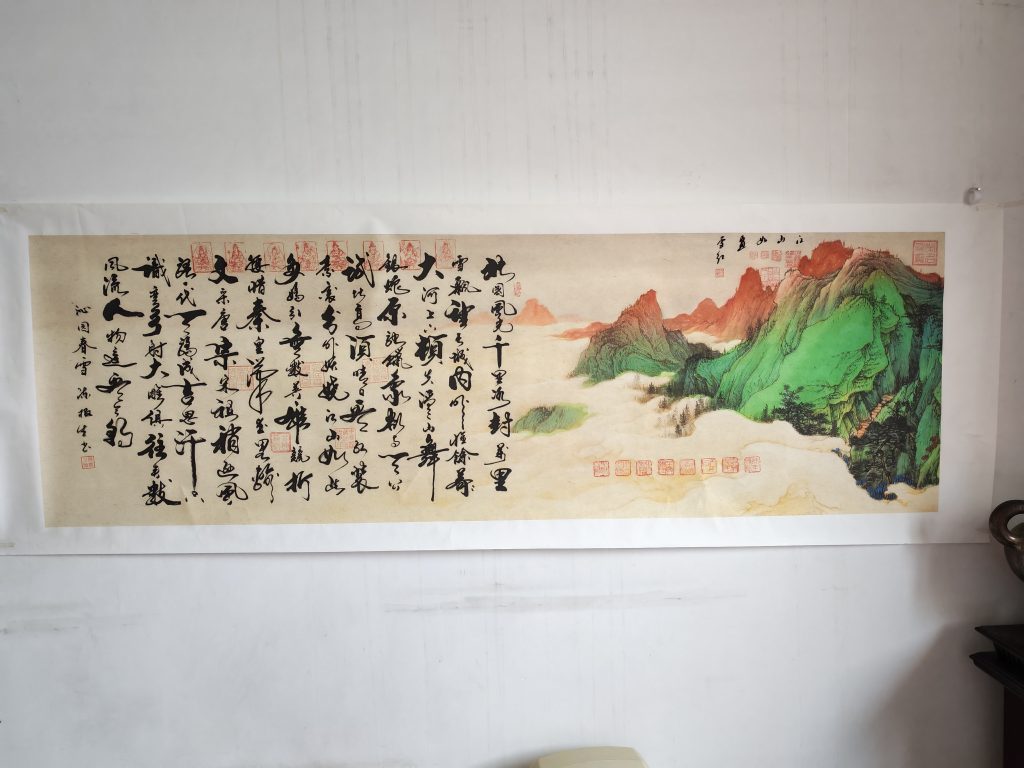 江山如
北国風光千里冰封万里
雪飘望长城内外惟餘莽
大河上下頓失滔滔山舞
銀蛇原馳蠟象欲与天公
試比高須晴日看红装
素裹分外妖娆江山如此
多嬌引無数英雄競折
腰惜秦皇漢武略輸
文采唐宗宋祖稍逊風
騷一代天驕成吉思汗只
識弯弓射大雕俱往矣数
風流人物還看今朝
沁园春雪